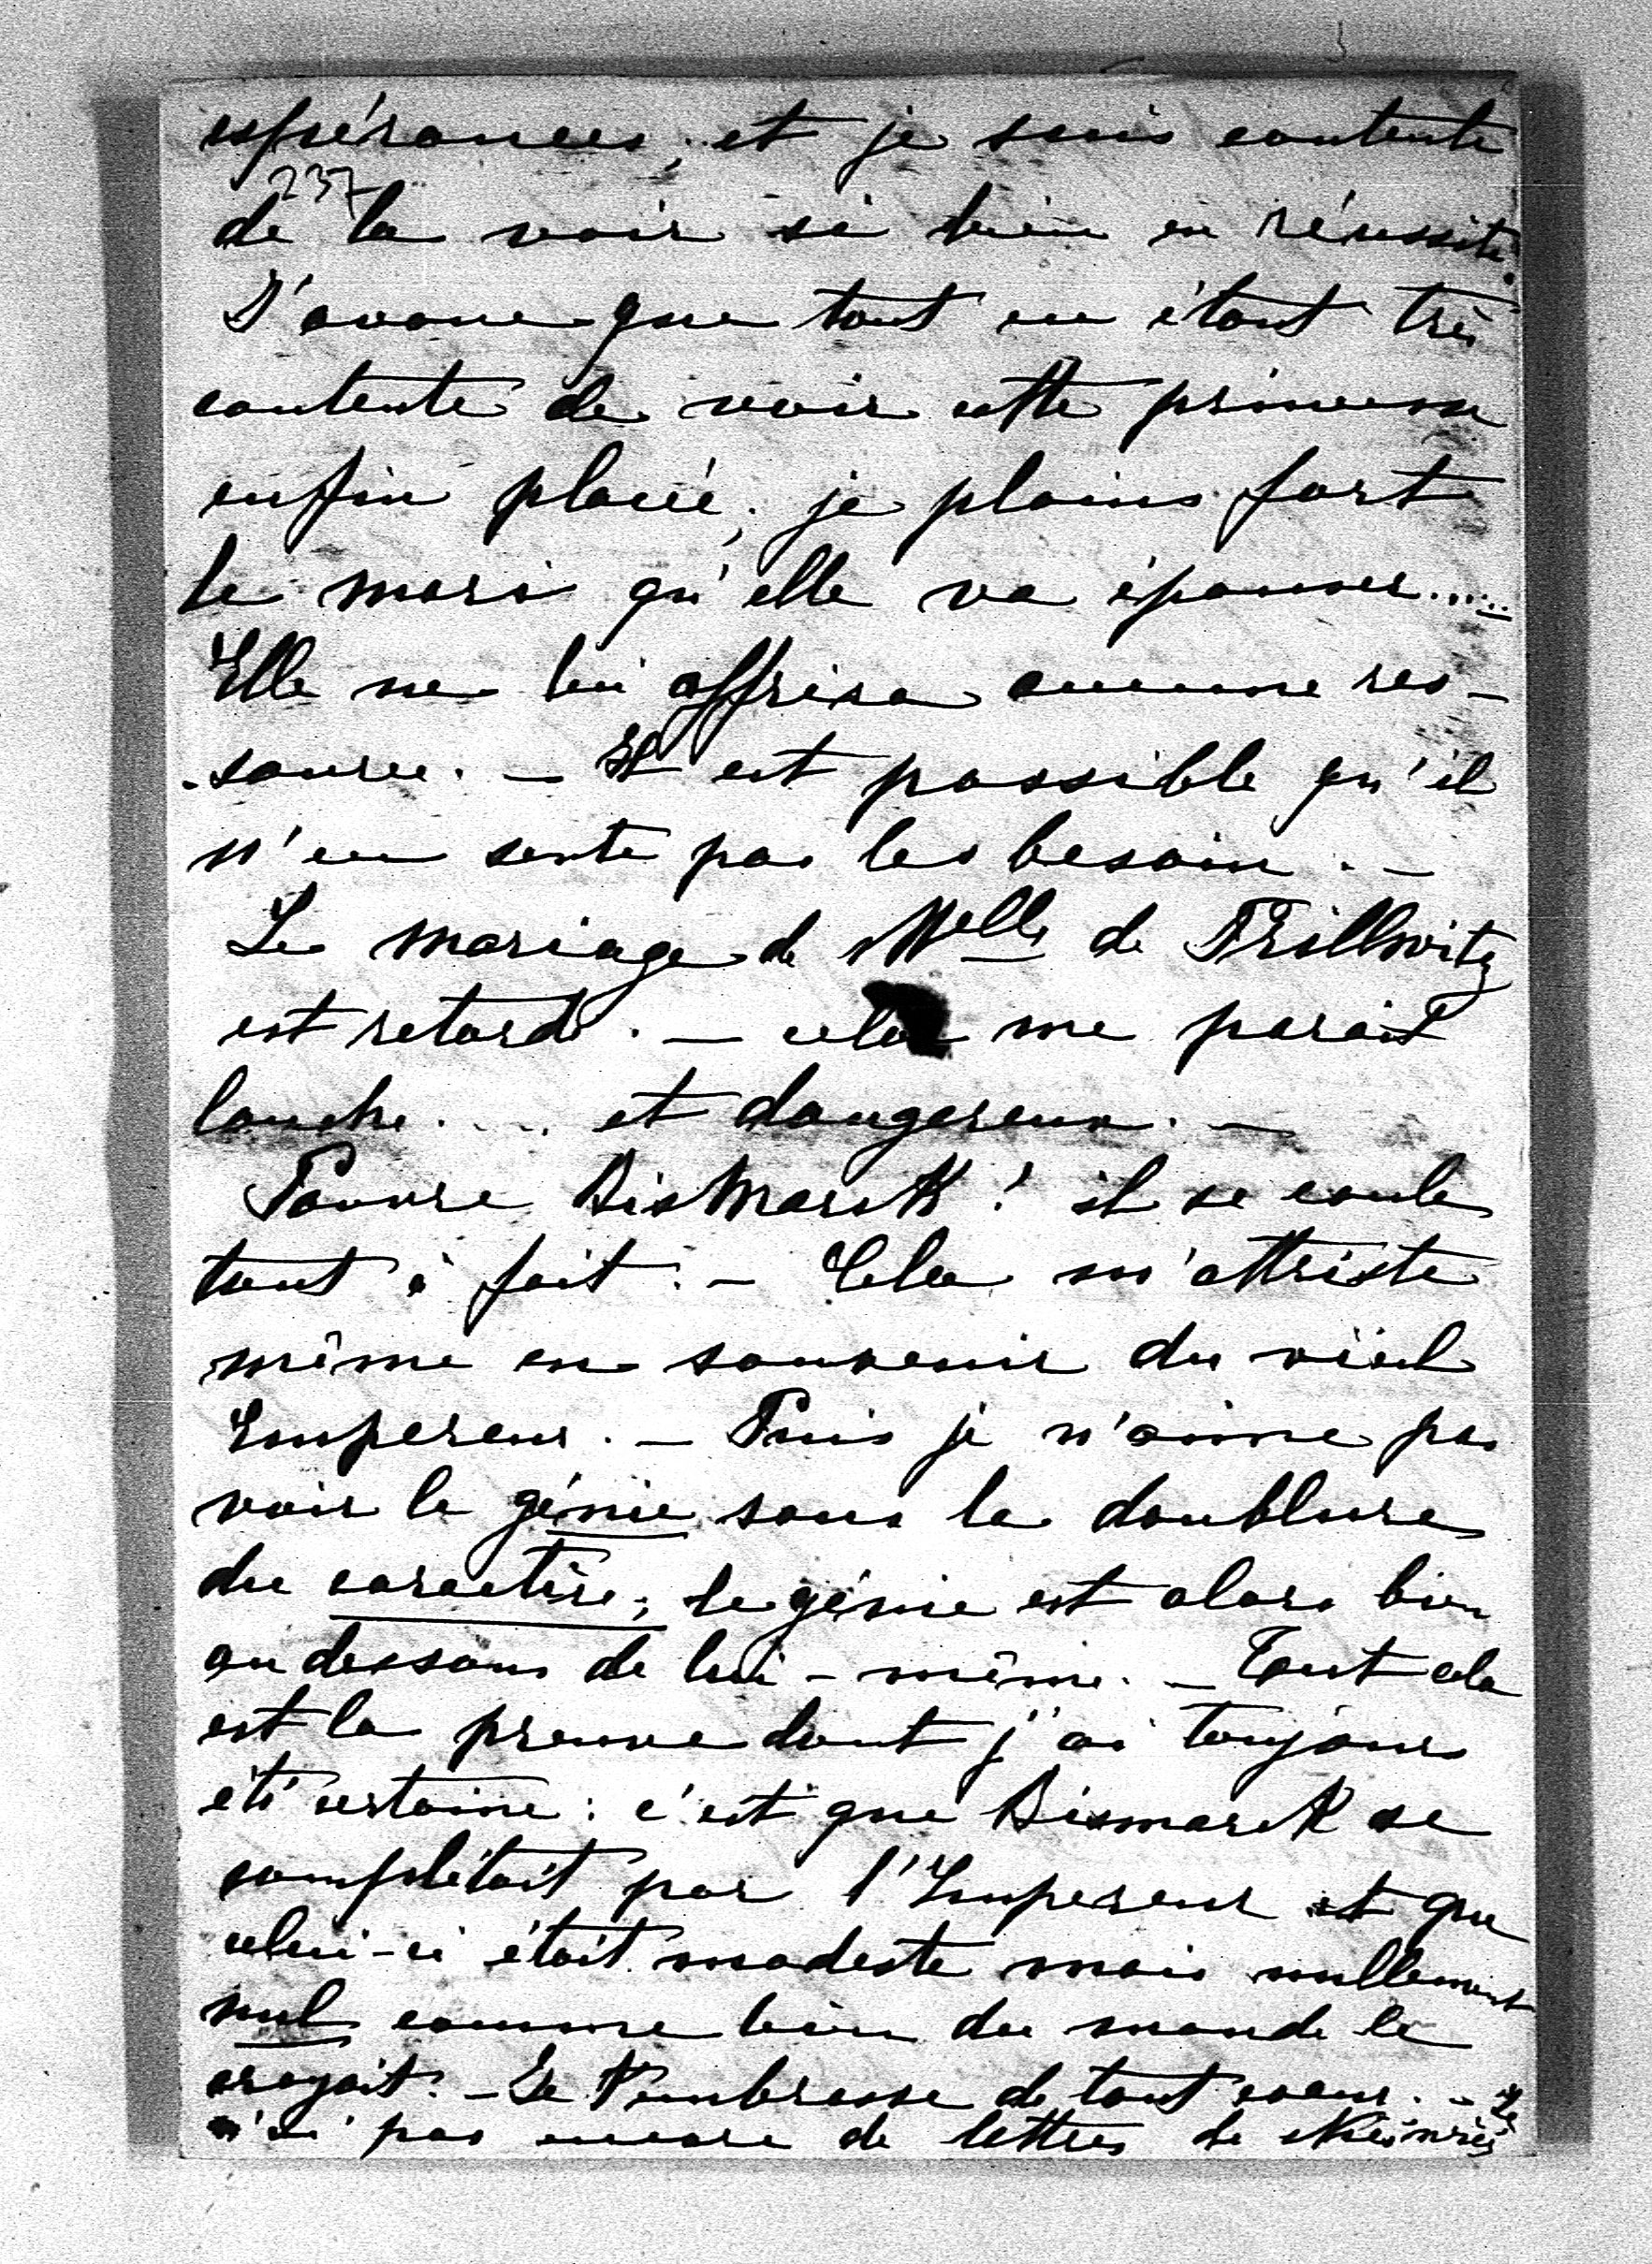 espérances, et je suis contente
237
de la voir si bien en réussite.
J'avoue que tout en étant très
contente de voir cette princesse
enfin placée, je plains fort
le mari qu'elle va épouser.....
Elle ne lui offrira aucune res-
-source. - Il est possible qu'il
n'en sente pas le besoin. -
Le mariage de Melle de Prillwitz
est retardé. - cela me parait
louche.... et dangereux. -
Pauvre Bismarck! il se coule
tout à fait. - Cela m'attriste
même en souvenir du vieil
Empereur. - Puis je n'aime pas
voir le génie sans la doublure
du caractère; le génie est alors bien
au dessous de lui-même. - Tout cela
est la preuve dont j'ai toujours
été certaine: c'est que Bismarck se
complétait par l'Empereur et que
celui-ci était modeste mais nullement
nul comme bien du monde le
croyait. - Je t'embrasse de tout coeur. - Je
n'ai pas encore de lettres de